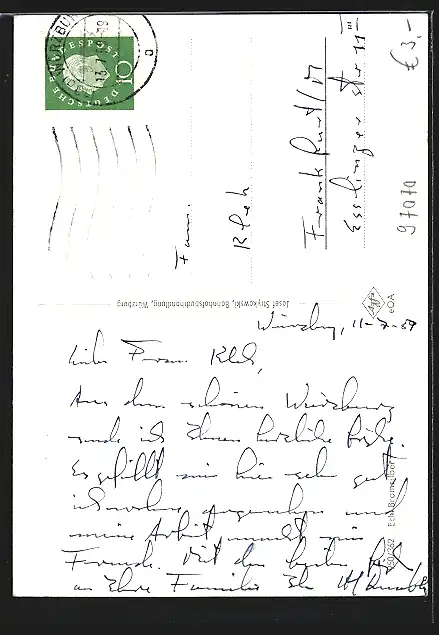 WÜRZBURG
DEUTSCHE BUNDESPOST
10
Fam.
Kleh
Frankfurt/M
Esslinger Str 11 III
€ 3.-
97070
Josef Strykowski, Bahnhofsbuchhandlung, Würzburg
Agfa
Würzburg, 11-7-59
Liebe Frau Kleh,
Aus dem schönen Würzburg
sende ich Ihnen herzliche Grüße.
Es gefällt mir hier sehr gut
ich wohne angenehm und
meine Arbeit macht mir
Freude. Mit den besten
an Ihre Familie Ihr